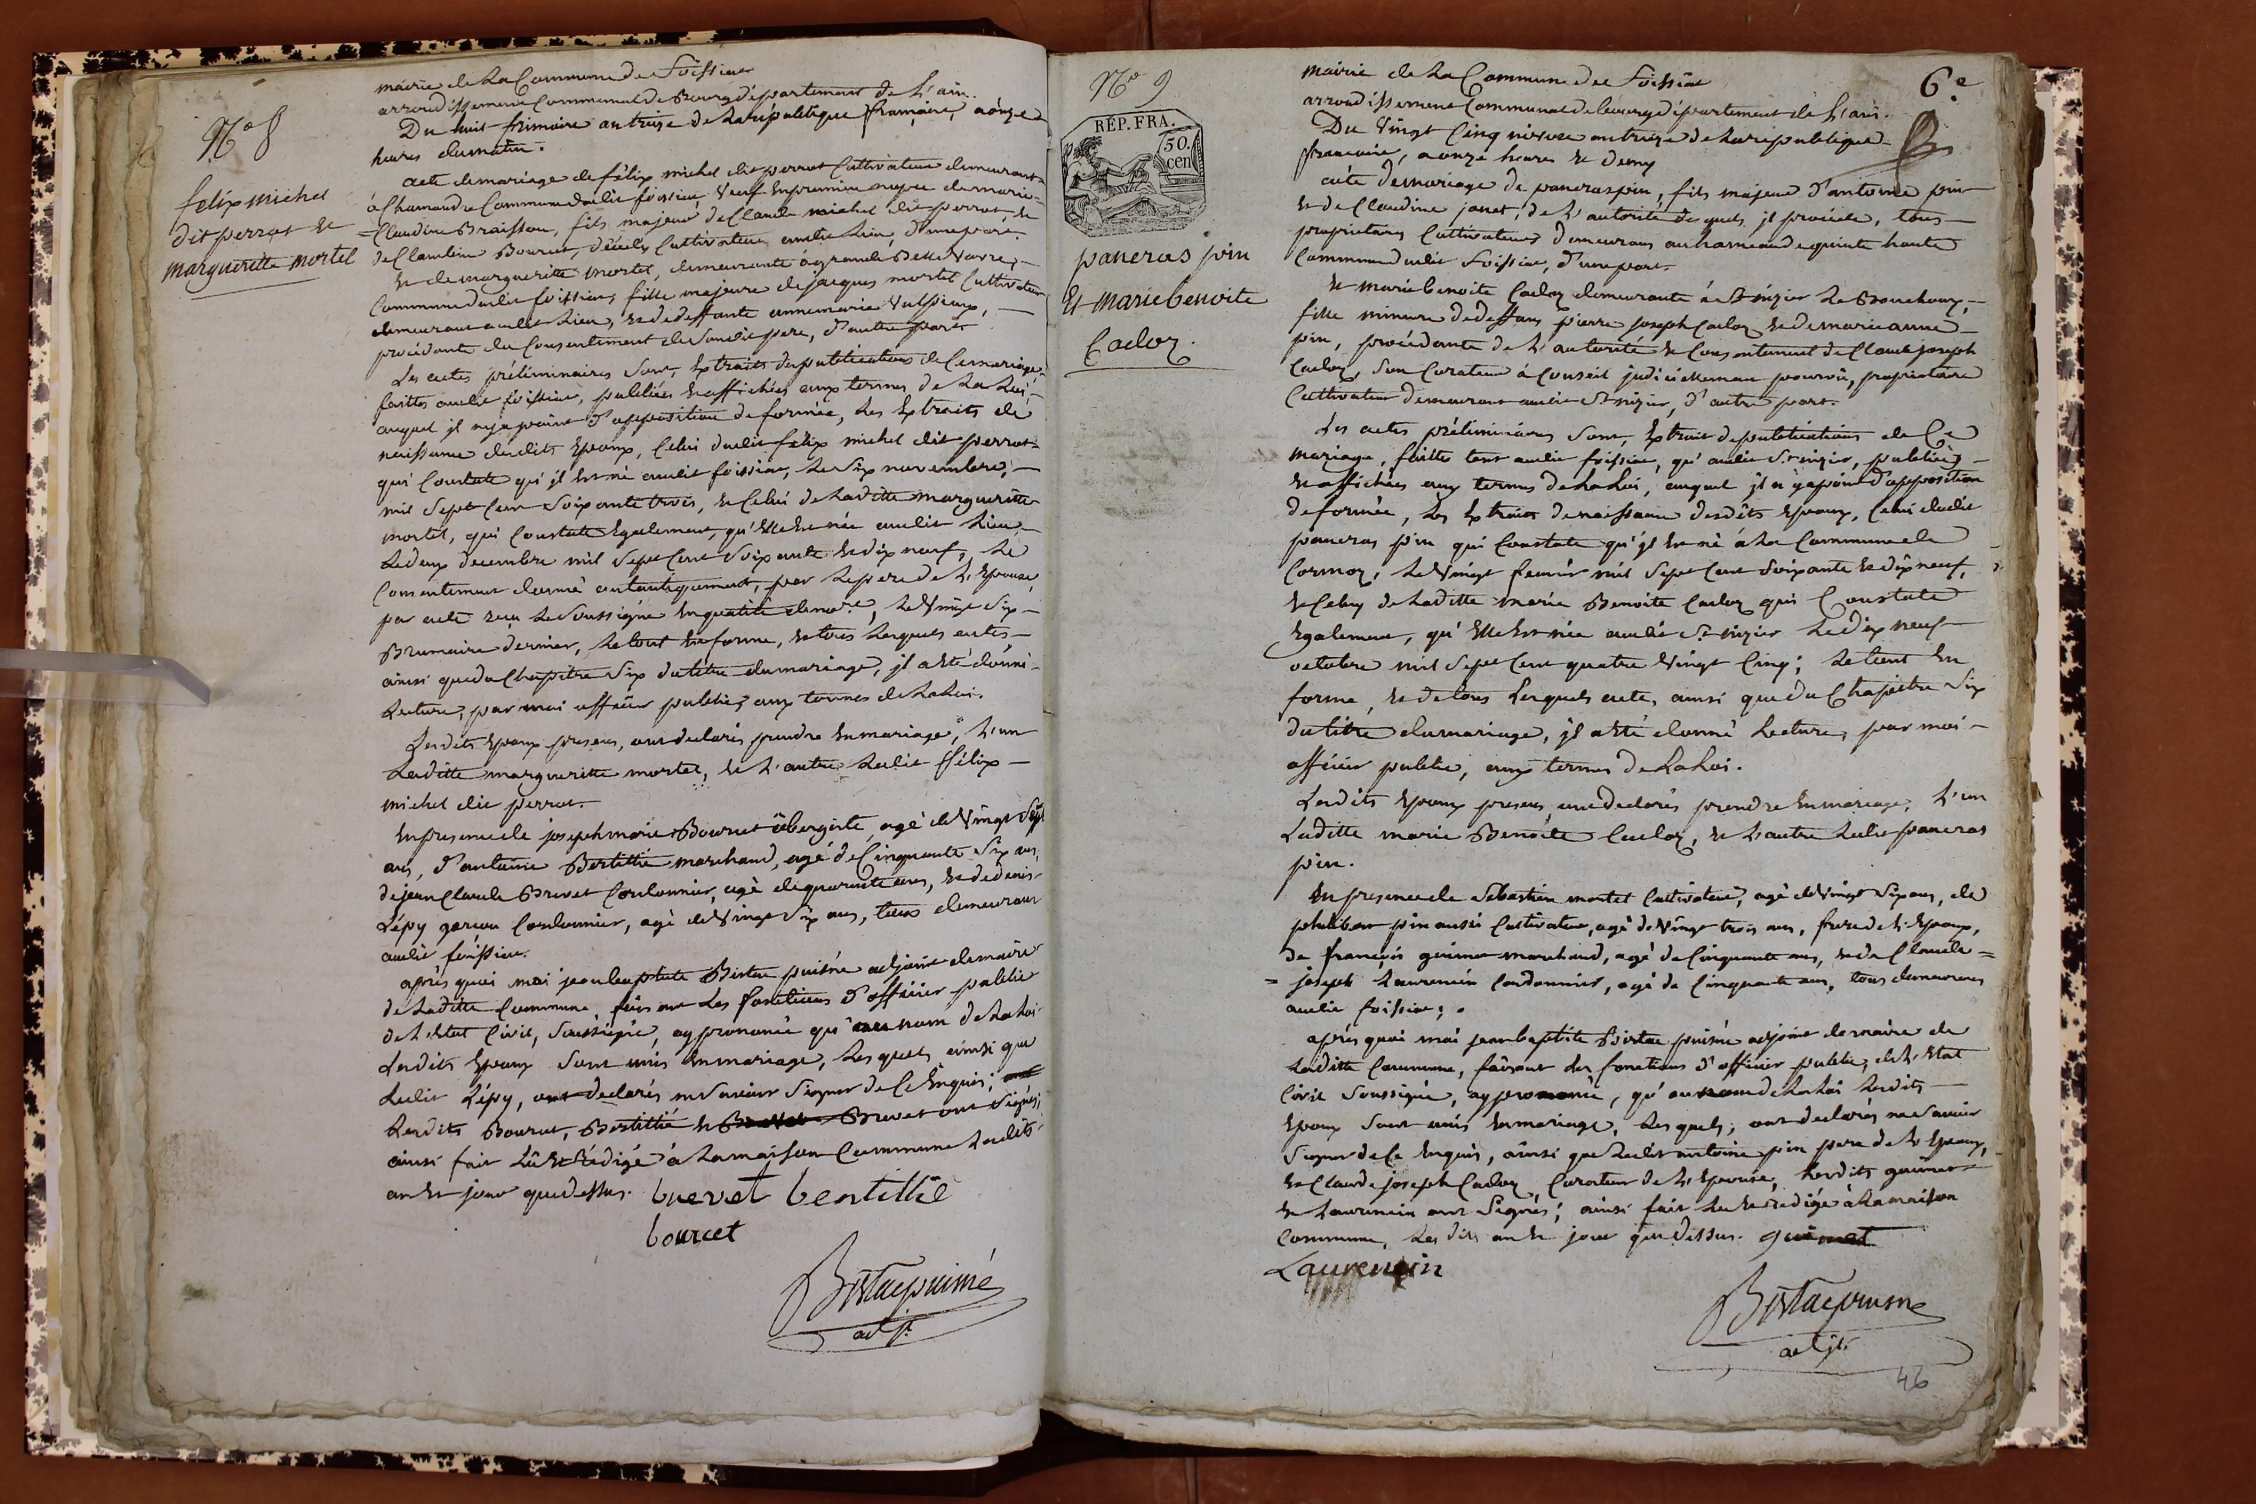 mairie de la Commune de Foissiac
arrondissement Communal de Bourg département de L'ain.
Du huit frimaire an treize de la république française, à onze
heures du matin.
N.º 8
felix michel
dit perrat et
margueritte mortel
acte de mariage de félix michel dit perrat Cultivateur demeurant
à Chamandre Commune dudit foissiac Veuf en premiere nopce de marie
Claudine Braisson, fils majeur de Claude michel dit perrat, et
de Claudine Bourcet, décédés Cultivateurs audit Lieu, d'une part.
Et de margueritte mortel, demeurante à grande Belle Vavre,
Commune dudit foissiac, fille majeure de jacques mortel Cultivateur
demeurant audit Lieu, et de deffunte annemarie Vulpieux,
procédante du Consentement de Sondit pere, d'autre part.
Les actes préliminaires Sont, Extraits des publications de Ce mariage,
faittes audit foissiac, publiées et affichées aux termes de La Loi,
auquel il n'y a point d'opposition de formée, Les Extraits de
naissance desdits Epoux, Celui dudit félix michel dit perrat
qui Constate qu'il Est né audit foissiac, Le Six novembre,
mil Sept Cent Soixante trois, et Celui de Laditte marguerittte
mortel, qui Constate Egalement, qu'Elle Est née audit Lieu
Le deux decembre mil Sept Cent Soixante et dix neuf, Le
Consentement donné autentiquement, par Le pere de L'Epouse,
par acte reçu Le Soussigné En qualité de no.re, Le Vingt Six
Brumaire dernier, Le tout En forme, de tous Lesquels actes
ainsi que du Chapitre Six du titre du mariage, il a été donné
Lecture, par moi officier public, aux termes de La Loi.
Lesdits Epoux presens, ont declarés prendre En mariage, L'un
Laditte marguerittte mortel, et L'autre Ledit félix
michel dit perrat.
En presence de joseph marie Bourcet aubergiste, agé de Vingt Sept
ans, d'antoine Bertillié marchand, agé de Cinquante Six ans,
de jean Claude Brevet Cordonnier, agé de quarante ans, et de denis
Lépy garçon Cordonnier, agé de Vingt Six ans, tous demeurans
audit foissiac.
après quoi moi jean baptiste Bistac puisné adjoint du maire
de Laditte Commune, faisant Les fonctions d'officier public
de L'Etat Civil, Soussigné, ay prononcé qu'au nom de La Loi
Lesdits Epoux Sont unis En mariage, Lesquels ainsi que
Ledit Lépy, ont declarés ne Savoir Signer de Ce Enquis;
Lesdits Bourcet, Bertillié et Brevet ont Signés;
ainsi fait Lû et Rédigé à La maison Commune Lesdits
an et jour que dessus. brevet bertillié
bourcet
Bistac puiné
adj.t
N.º 9
RÉP. FRA.
50.
cen
pancras pin
Et marie benoite
Cadoz.
6.e
mairie de La Commune de Foissiac
arrondissement Communal de bourg département de L'ain.
Du Vingt Cinq nivose an treize de La republique
francaise, a onze heures et demy
acte de mariage de pancras pin, fils majeur d'antoine pin
et de Claudine janet, de L'autorité desquels il procède, tous
proprietaires Cultivateurs demeurans au hameau de quinte haute
Commune dudit Foissiac, d'une part.
Et marie benoite Cadoz demeurante à St nizier Le Bouchoux,
fille mineure de deffans pierre joseph Cadoz et de marie anne
pin, procédante de L'autorité et Consentement de Claude joseph
Cadoz, Son Curateur à Conseil judiciellement pourvu, proprietaire
Cultivateur demeurant audit St nizier, d'autre part.
Les actes préliminaires Sont, Extrait de publications de Ce
mariage, faittes tant audit foissiac, qu'audit St nizier, publiées
et affichées aux termes de La Loi, auquel il n'y a point d'opposition
de formée, Les Extraits de naissance desdits Epoux, Celui dudit
pancras pin qui Constate qu'il Est né à La Commune de
Cormoz, Le Vingt fevrier mil Sept Cent Soixante et dix neuf,
et Celuy de Laditte marie Benoite Cadoz qui Constate
Egalement, qu'Elle Est née audit St nizier Le dix neuf
octobre mil Sept Cent quatre Vingt Cinq; Le tout En
forme, et de tous Lesquels actes, ainsi que du Chapitre Six
du titre du mariage, il a été donné Lecture, par moi
officier public, aux termes de La Loi.
Lesdits Epoux presens ont declarés prendre En mariage, L'un
Laditte marie Benoite Cadoz, et L'autre Ledit pancras
pin.
En presence de Sébastien mortel Cultivateur, agé de Vingt Six ans, de
philibert pin aussi Cultivateur, agé de Vingt trois ans, frere de L'Epoux,
de françois guimet marchand, agé de Cinquante ans, et de Claude
joseph Laurencin Cordonnier, agé de Cinquante ans, tous demeurans
audit foissiac;
après quoi moi jean baptiste Bistac puisné adjoint du maire de
Laditte Commune, faisant Les fonctions d'officier public, de L'Etat
Civil Soussigné, ay prononcé, qu'au nom de La Loi Lesdits
Epoux Sont unis En mariage, Lesquels, ont declarés ne Savoir
Signer de Ce Enquis, ainsi que Ledit antoine pin pere de L'Epoux,
et Claude joseph Cadoz Curateur de L'Epouse, Lesdits guimet
et Laurencin ont Signés; ainsi fait Lu et redigé à La maison
Commune, Lesdits an et jour que dessus. guimet
Laurencin
Bistac puisné
adj.t
46